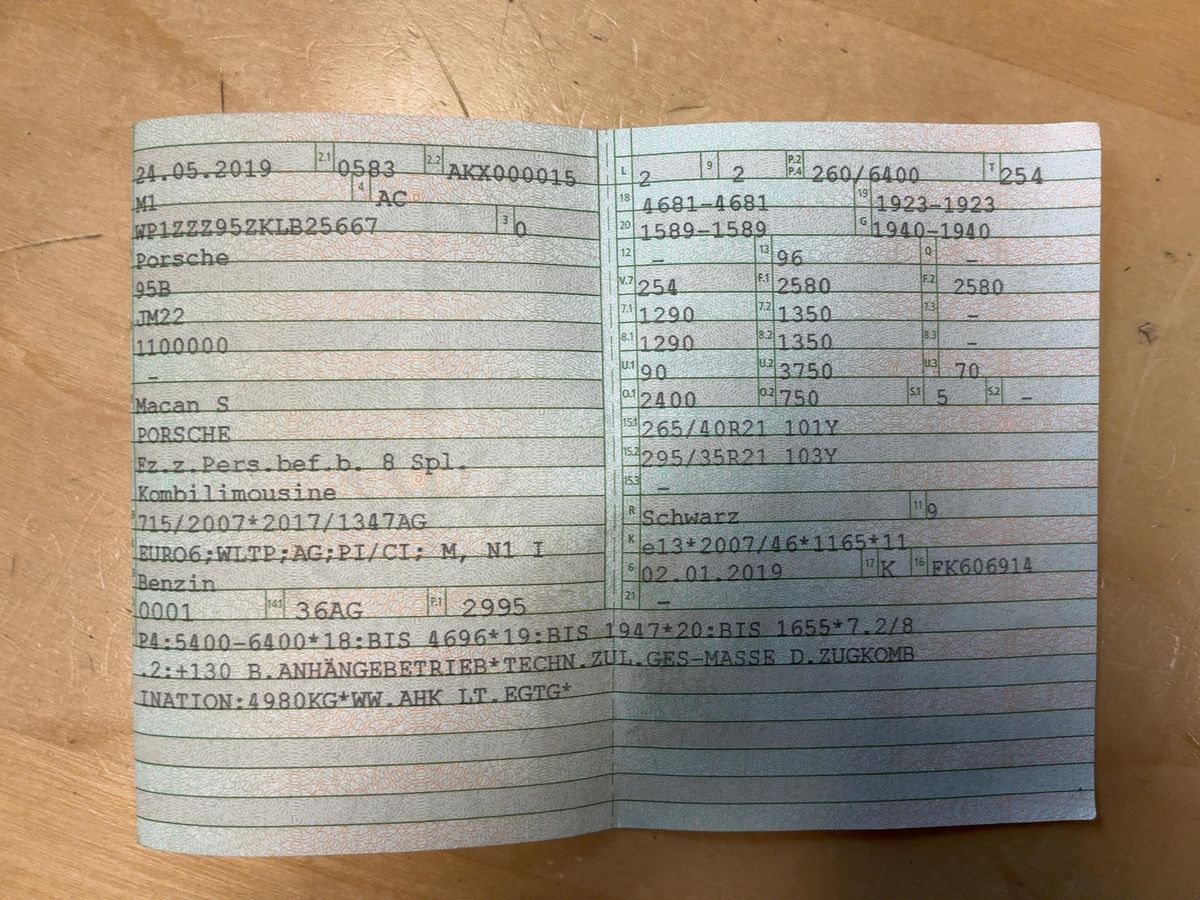 24.05.2019 2.1 0583 2.2 AKX000015
M1 4 AC
WP1ZZZ95ZKLB25667 3 0
Porsche
95B
JM22
1100000
–
Macan S
PORSCHE
Fz.z.Pers.bef.b. 8 Spl.
Kombilimousine
715/2007*2017/1347AG
EURO6;WLTP;AG;PI/CI; M, N1 I
Benzin
0001 14.1 36AG P.1 2995
L 2 9 2 P.2 P.4 260/6400 T 254
18 4681-4681 19 1923-1923
20 1589-1589 G 1940-1940
12 – 13 96 Q –
V.7 254 F.1 2580 F.2 2580
7.1 1290 7.2 1350 7.3 –
8.1 1290 8.2 1350 8.3 –
U.1 90 U.2 3750 U.3 70
O.1 2400 O.2 750 S.1 5 S.2 –
15.1 265/40R21 101Y
15.2 295/35R21 103Y
15.3 –
R Schwarz 11 9
K e13*2007/46*1165*11
6 02.01.2019 17 K 16 FK606914
21 –
P4:5400-6400*18:BIS 4696*19:BIS 1947*20:BIS 1655*7.2/8
.2:+130 B.ANHÄNGEBETRIEB*TECHN.ZUL.GES-MASSE D.ZUGKOMB
INATION:4980KG*WW.AHK LT.EGTG*